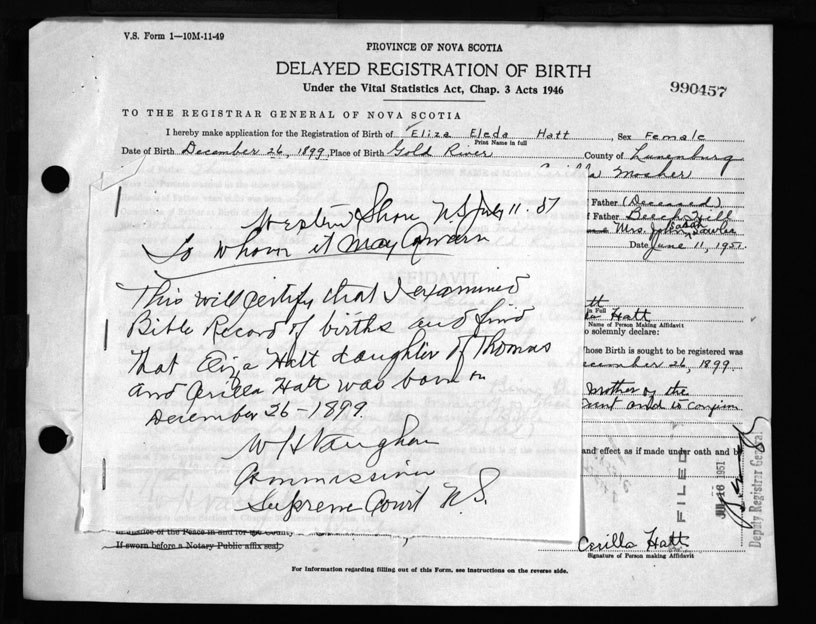 V.S. Form 1—10M-11-49
PROVINCE OF NOVA SCOTIA
DELAYED REGISTRATION OF BIRTH
Under the Vital Statistics Act, Chap. 3 Acts 1946
990457
TO THE REGISTRAR GENERAL OF NOVA SCOTIA
I hereby make application for the Registration of Birth of Eliza Eleda Hatt Sex Female
Print Name in full
Date of Birth December 26, 1899, Place of Birth Gold River County of Lunenburg
Mosher
Father (Deceased)
Father Beech Hill
Sarah
Mrs. John Sawler
Date June 11, 1951.
Western Shore N.S July 11.51
To whom it may Concern
This will certify that I examined
Bible Record of births and find
that Eliza Hatt daughter of Thomas
and Cerilla Hatt was born on
December 26-1899
W H Vaughan
Commissioner
Supreme Court N.S.
AFFIDAVIT
in Full
Hatt
Name of Person Making Affidavit
solemnly declare:
whose Birth is sought to be registered was
December 26, 1899.
mother of the
and effect as if made under oath and
FILED
JUL 16 1951
Deputy Registrar General
or Justice of the Peace in and for the County
If sworn before a Notary Public affix seal
Cerilla Hatt
Signature of Person making Affidavit
For Information regarding filling out of this Form, see instructions on the reverse side.